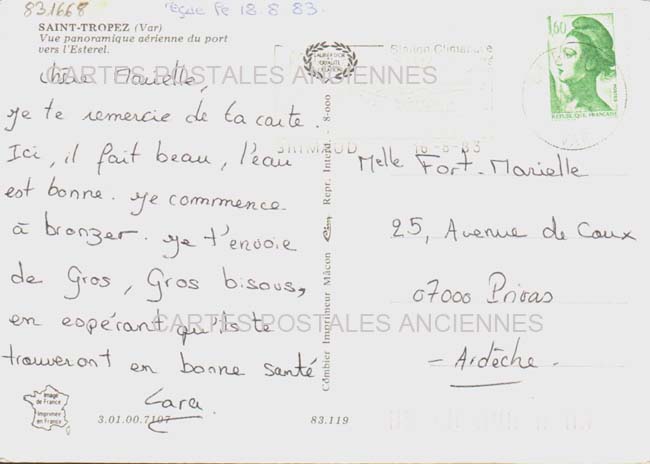 831668
reçue le 18.8.83.
SAINT-TROPEZ (Var)
Vue panoramique aérienne du port
vers l'Esterel.
CARTES POSTALES ANCIENNES
Chère Marielle,
Je te remercie de ta carte.
Ici, il fait beau, l'eau
est bonne. Je commence
à bronzer. Je t'envoie
de Gros, Gros bisous,
en espérant qu'ils te
trouveront en bonne santé
Cara
CARTES POSTALES ANCIENNES
Image
de France
Imprimée
en France
3.01.00.7107
83.119
Combier Imprimeur Mâcon Cim Repr. Interd. - 8-000
QUALITÉ
Station Climatique
GRIMAUD 16-8-83
VAR
1,60
REPUBLIQUE FRANÇAISE
Melle Fort-Marielle
25, Avenue de Coux
07000 Privas
- Ardèche -